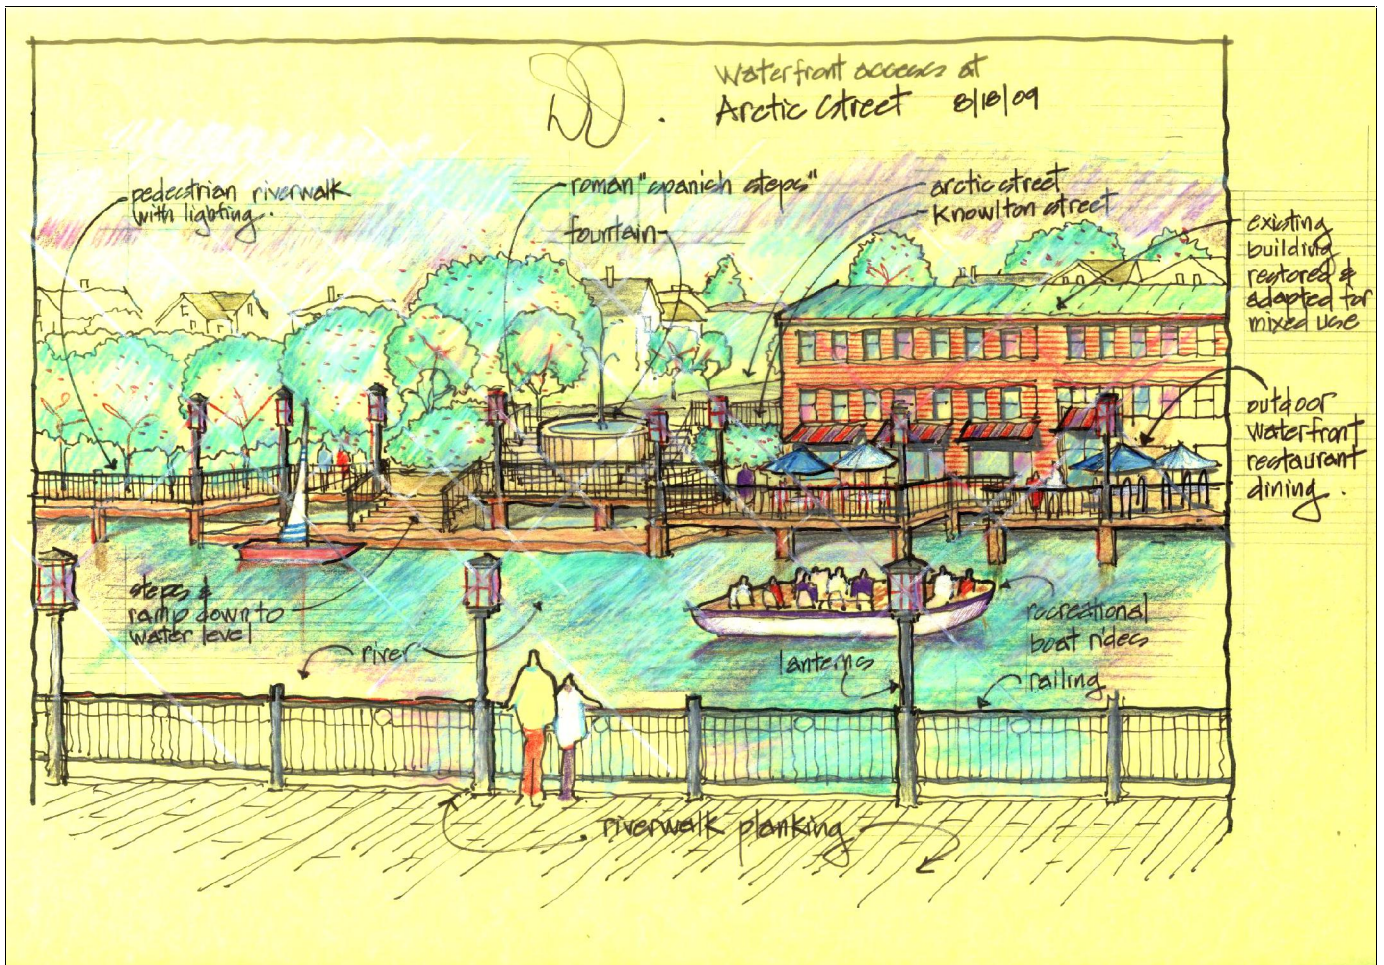 Waterfront access at
Arctic Street 8/18/09
pedestrian riverwalk
with lighting.
roman "spanish steps"
fountain
arctic street
Knowlton street
existing
building
restored &
adapted for
mixed use
outdoor
waterfront
restaurant
dining.
steps &
ramp down to
water level
river
recreational
boat rides
lanterns
railing
riverwalk planking